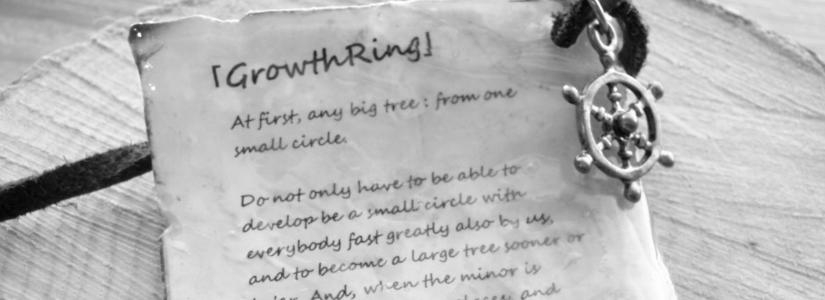 「GrowthRing」
At first, any big tree : from one
small circle.
Do not only have to be able to
develop be a small circle with
everybody fast greatly also by us,
and to become a large tree sooner or
And, when the minor is
and